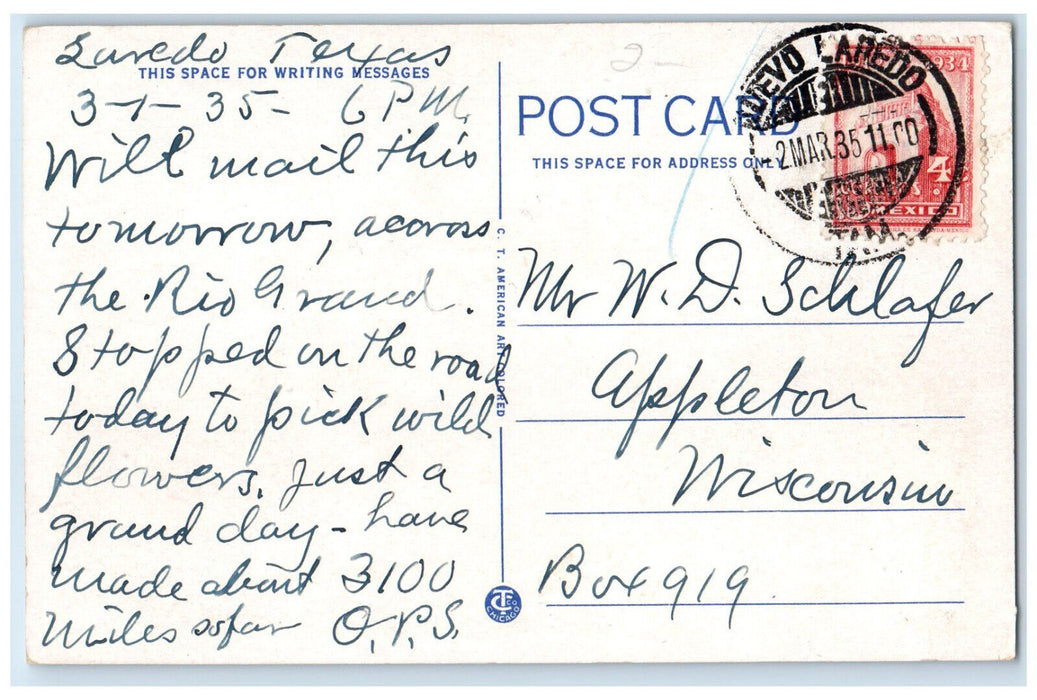 Laredo Texas
THIS SPACE FOR WRITING MESSAGES
3-1-35- 6 PM.
Will mail this
tomorrow, accross
the Rio Grand.
Stopped on the road
today to pick wild
flowers, just a
grand day - have
made about 3100
miles so far O.P.S.
C. T. AMERICAN ART COLORED
CT CO
CHICAGO
2-
POST CARD
THIS SPACE FOR ADDRESS ONLY
NUEVO LAREDO
2 MAR. 35 11.00
TAM.
1934
4
MEXICO
Mr W. D. Schlafer
Appleton
Wisconsin
Box 919